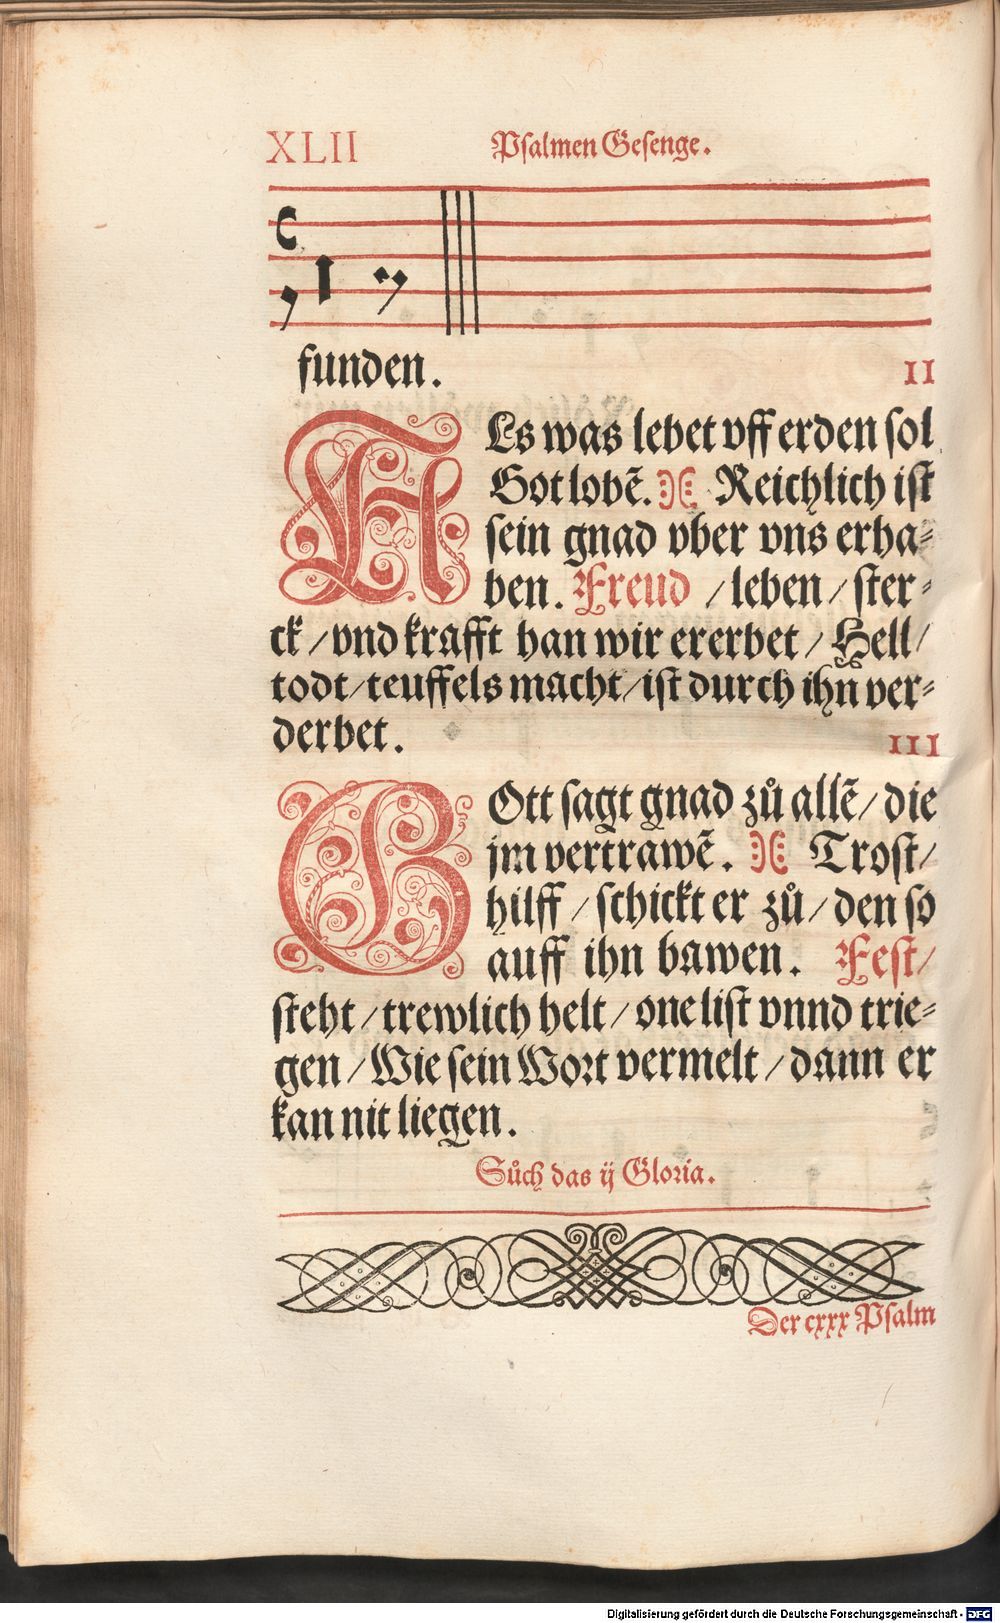 XLII Psalmen Gesenge.
funden.
II
ALs was lebet vff erden sol
Got lobẽ. Reichlich ist
sein gnad vber vns erha⸗
ben. Freud / leben / ster⸗
ck / vnd krafft han wir ererbet / Hell /
todt / teuffels macht / ist durch ihñ ver⸗
derbet.
III
GOtt sagt gnad zů allẽ / die
jm vertrawẽ. Trost /
hilff / schickt er zů / den so
auff ihn bawen. Fest /
steht / trewlich helt / one list vnnd trie⸗
gen / Wie sein Wort vermelt / dann er
kan nit liegen.
Sůch das ij Gloria.
Der cxxx Psalm
Digitalisierung gefördert durch die Deutsche Forschungsgemeinschaft - DFG